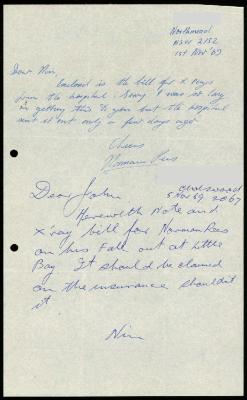 Northwood
NSW 2152
1st Nov '67
Dear Nin,
Enclosed is the bill for X rays
from the hospital. Sorry I was so long
in getting this to you but the hospital
sent it out only a few days ago.
Cheers
Norman Rees
Dear John
Chatswood
5 Nov 69 2067
Herewith Note and
X'ray bill for Norman Rees
on his Fall out at Little
Bay. It should be claimed
on the insurance shouldn't
it
Nin